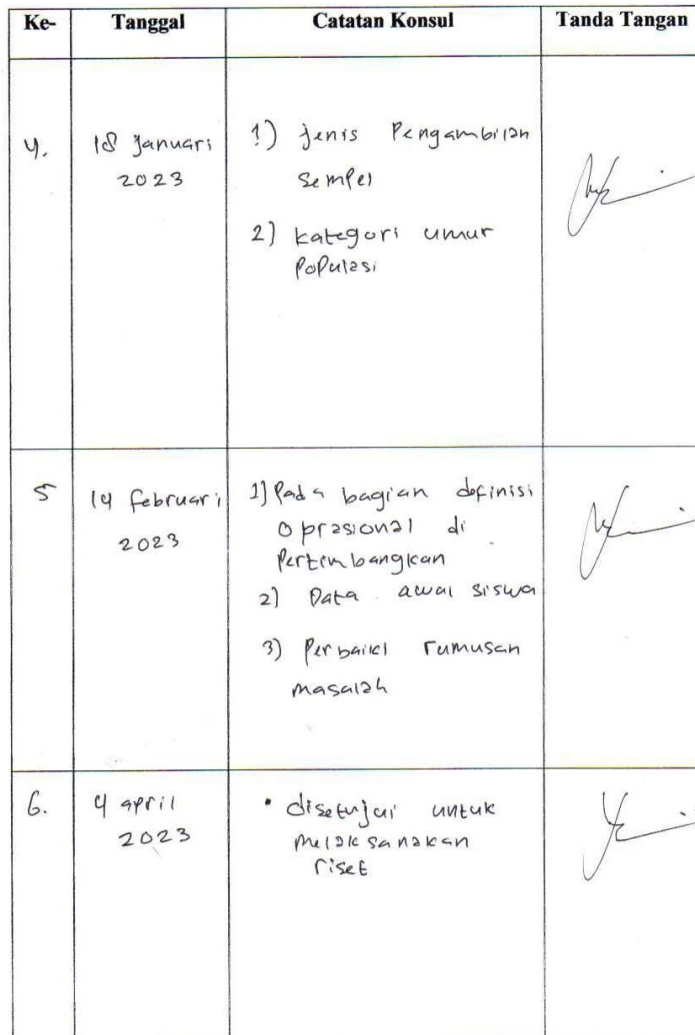 Ke- Tanggal Catatan Konsul Tanda Tangan
4. 18 Januari 2023 1) Jenis Pengambilan
Sempel
2) Kategori umur
Populasi
5 14 februari 2023 1) Pada bagian definisi
Oprasional di
Pertimbangkan
2) Data awal siswa
3) Perbaiki rumusan
masalah
6. 4 april 2023 • disetujui untuk
melaksanakan
riset